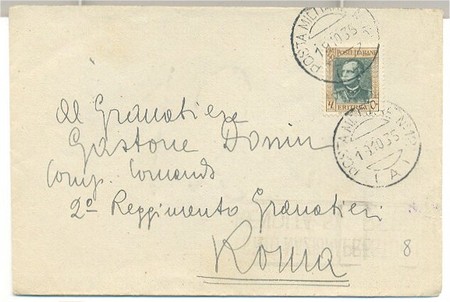 POSTA MILITARE
19.10.35
POSTE ITALIANE
ERITREA
POSTA MILITARE N° 12
19.10.35
(A)
Al Granatiere
Gastone Donin
Comp. Comando
2° Reggimento Granatieri
Roma
8